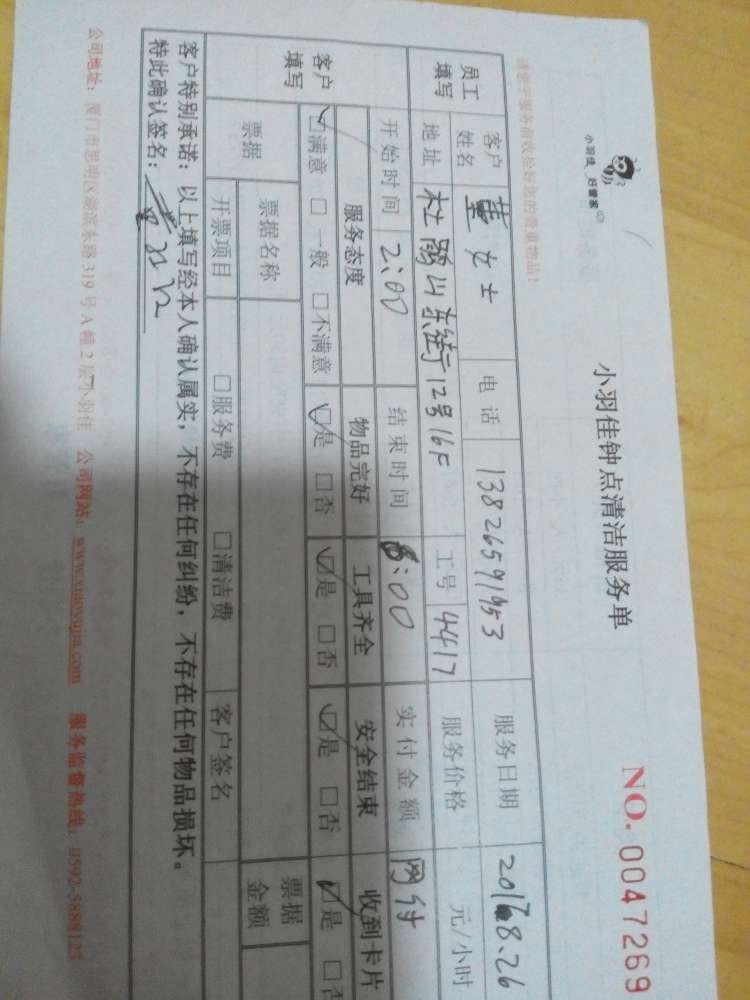 小羽佳 好管家
小羽佳钟点清洁服务单
NO. 0047269
请您于服务前收拾好您的贵重物品！
员工填写 客户姓名 女士 电话 13826591953 服务日期 8.26
地址 杜鹃山东街12号16F 工号 4417 服务价格 元/小时
客户填写 开始时间 2:00 结束时间 :00 实付金额 网付
服务态度 物品完好 工具齐全 安全结束 收到卡片
☑满意 □一般 □不满意 ☑是 □否 ☑是 □否 ☑是 □否 ☑是 □否
票据 票据名称 票据金额
开票项目 □服务费 □清洁费 客户签名
客户特别承诺：以上填写经本人确认属实，不存在任何纠纷，不存在任何物品损坏。
特此确认签名：
公司地址：厦门市思明区湖滨东路319号A幢2层小羽佳 公司网站：www.xiaoyujia.com 服务监督热线：0592-5888123